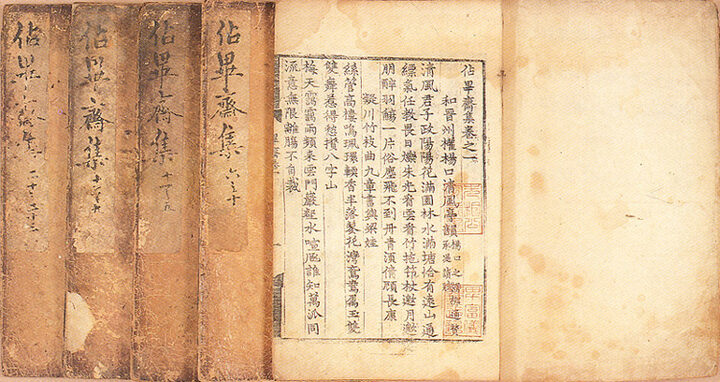 佔畢齋集卷之一
和晋州權楊口清風亭韻
清風君子政陽陽花滿園林水滿塘恰有遠山通
縹氣任教畏日爍朱光看雲看竹拖筇杖邀月邀
朋醉羽觴一片俗塵飛不到丹青須倩顧長康
凝川竹枝曲九章書與梁娃
絲管高樓鳴珮環 香半落鬂花灣鴛鴦屬玉雙
雙舞惹得愁攢八字山
梅天靄靄雨頻來雲門巖壑水喧豗誰知萬派同
流意無限離腸不自裁
佔畢齋集 六之十
佔畢齋集
佔畢齋集
佔畢齋集 二十之二十三